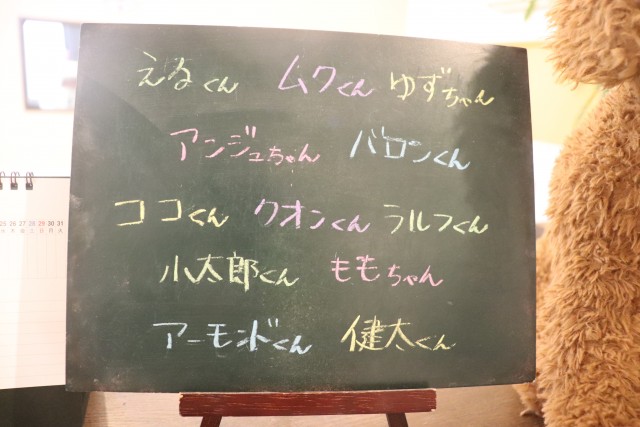 えるくん ムクくん ゆずちゃん
アンジュちゃん バロンくん
ココくん クオンくん ラルフくん
小太郎くん ももちゃん
アーモンドくん 健太くん
25 26 27 28 29 30 31